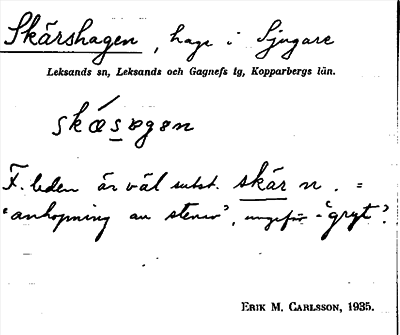 Skärshagen, hage i Sjugare
Leksands sn, Leksands och Gagnefs tg, Kopparbergs län.
skǽsagən
F. leden är väl subst. skär n. =
"anhopning av stenar", ungefär = "gryt".
ERIK M. CARLSSON, 1935.